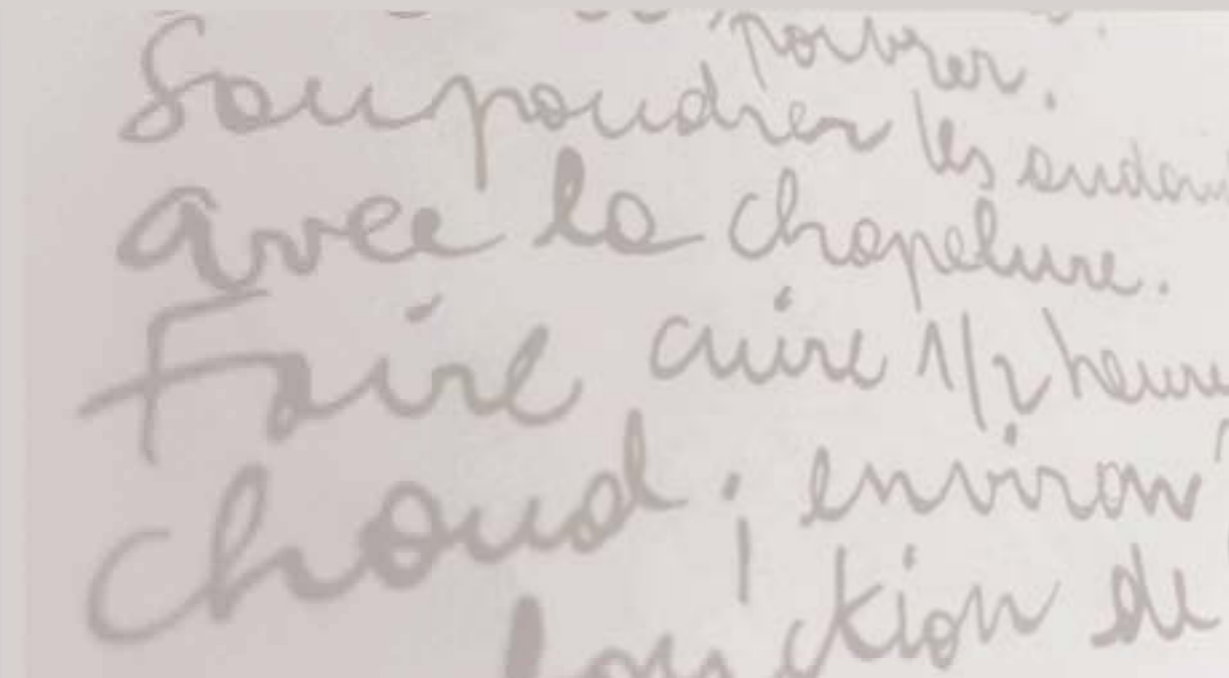 poivrer.
Saupoudrer les
avec la chapelure.
Faire cuire 1/2 heure
chaud, environ
fonction de